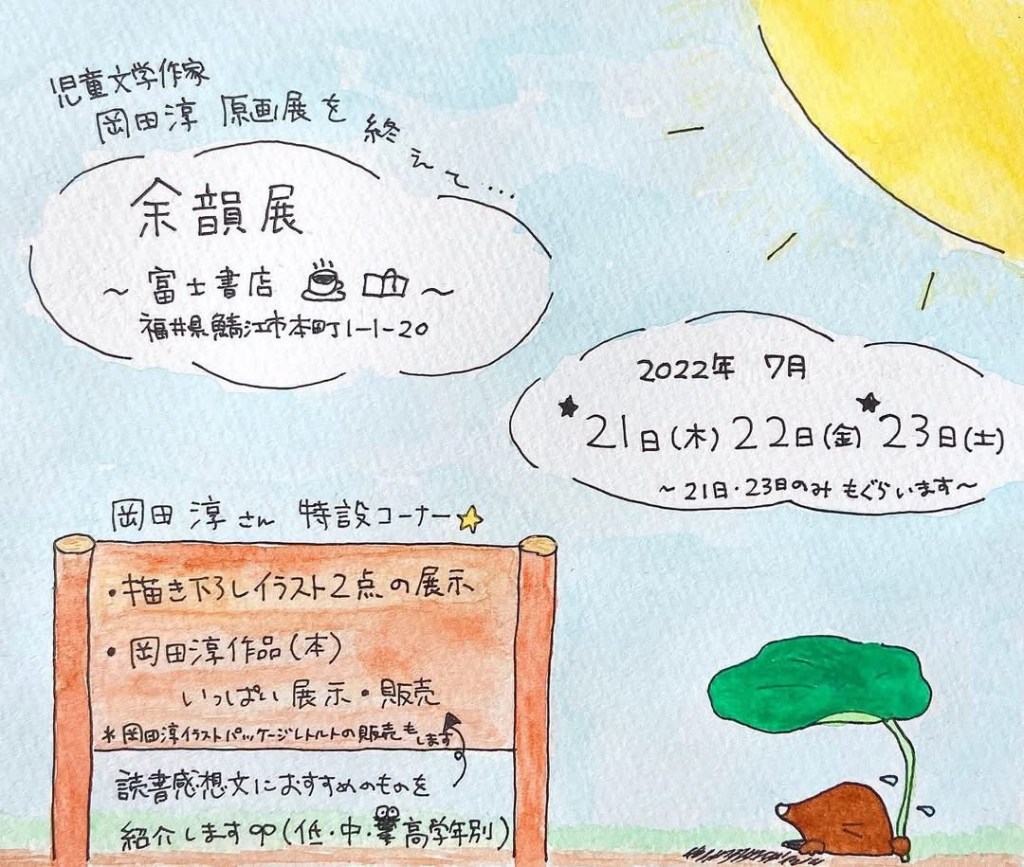 児童文学作家
岡田淳 原画展を終えて…
余韻展
～富士書店～
福井県鯖江市本町1-1-20
2022年 7月
★21日(木) 22日(金) ★23日(土)
～21日・23日のみ もぐらいます～
岡田 淳さん 特設コーナー
・描き下ろしイラスト2点の展示
・岡田淳作品(本)
いっぱい展示・販売
*岡田淳イラストパッケージレトルトの販売もします
読書感想文におすすめのものを
紹介します(低・中・高学年別)